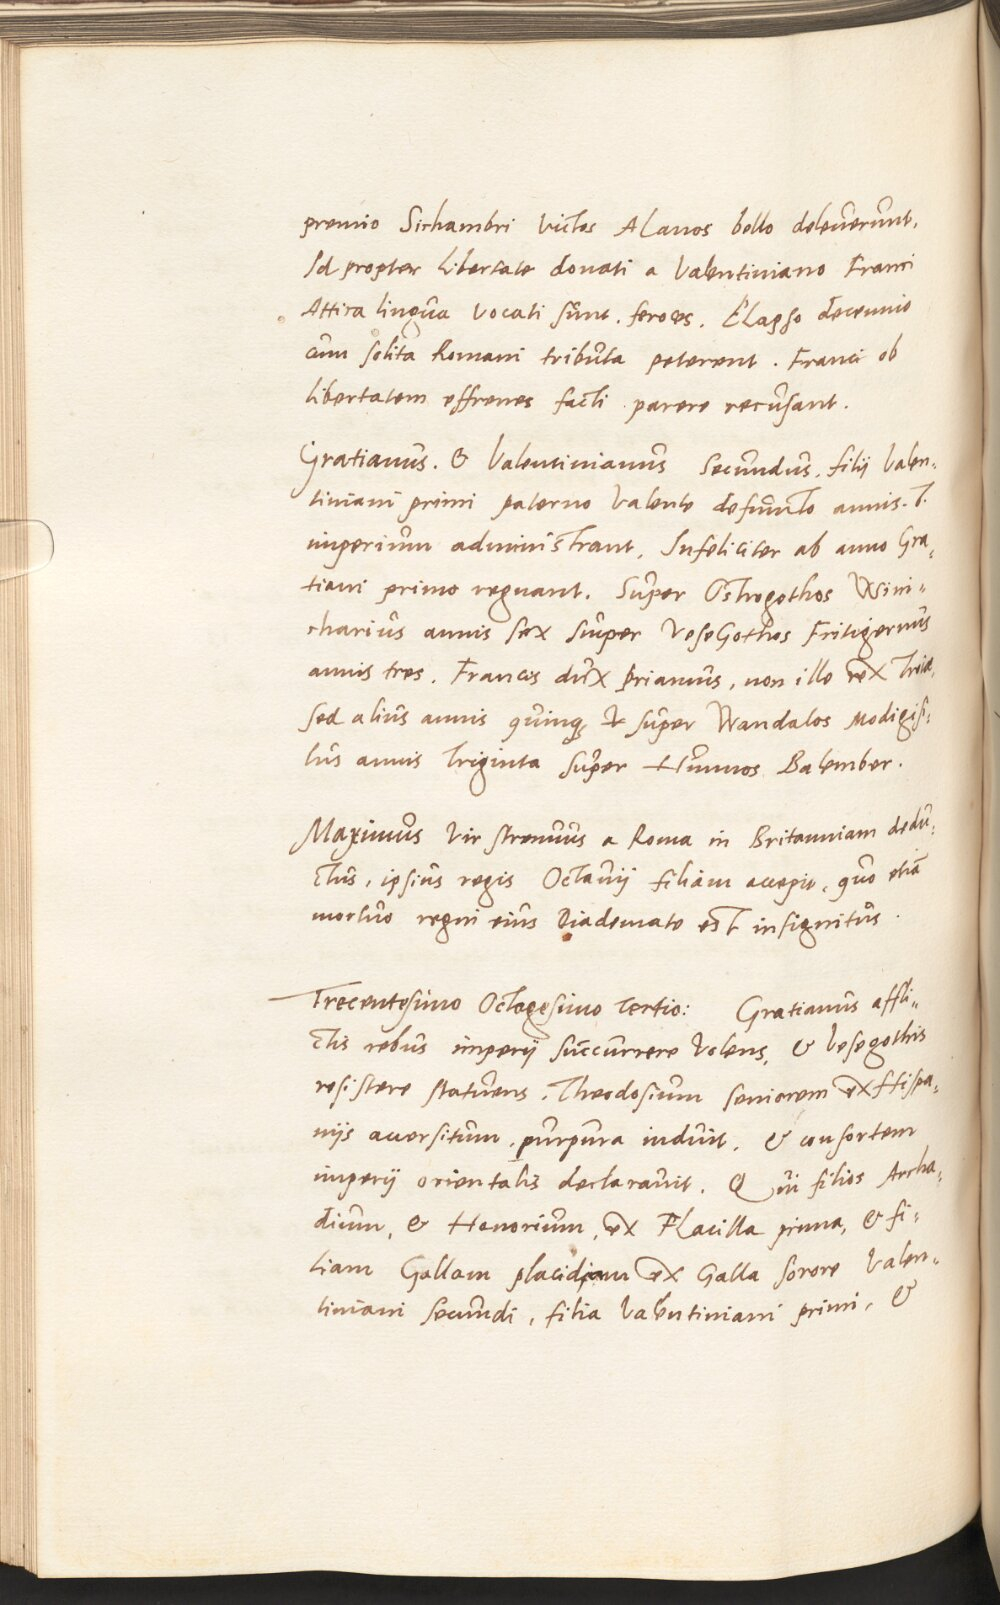 premio Sichambri victos Alanos bello deleuerunt,
Id propter libertate donati a Valentiniano Franci
Attica lingua vocati sunt. feroces. Elapso decennio
cum solita Romani tributa peterent. Franci ob
libertatem effrenes facti parere recusant.
Gratianus. & Valentinianus secundus. filij Valen-
tiniani primi paterno Valente defuncto annis. T.
imperium administrant, Infeliciter ab anno Gra-
tiani primo regnant. Super Ostrogothos Wini-
tharius annis sex super VeseGothos Fritigernus
annis tres. Francis dux Priamus, non ille rex Troiæ,
sed alius annis quinq; & super Wandalos Modigisi-
lus annis Triginta super Hunnos Balember.
Maximus vir strenuus a Roma in Britanniam dedu-
ctus, ipsius regis Octauij filiam accepit, quo etiã
mortuo regni eius Diademate est insignitus.
Trecentesimo Octogesimo tertio: Gratianus affli-
ctis rebus imperij succurrere volens, & Vesegothis
resistere statuens, Theodosium seniorem ex Hispa-
nijs accersitum, purpura induit, & consortem
imperij orientalis declarauit. Qui filios Archa-
dium, & Honorium, ex Placilla prima, & fi-
liam Gallam placidiam ex Galla sorore Valen-
tiniani secundi, filia Valentiniani primi, &